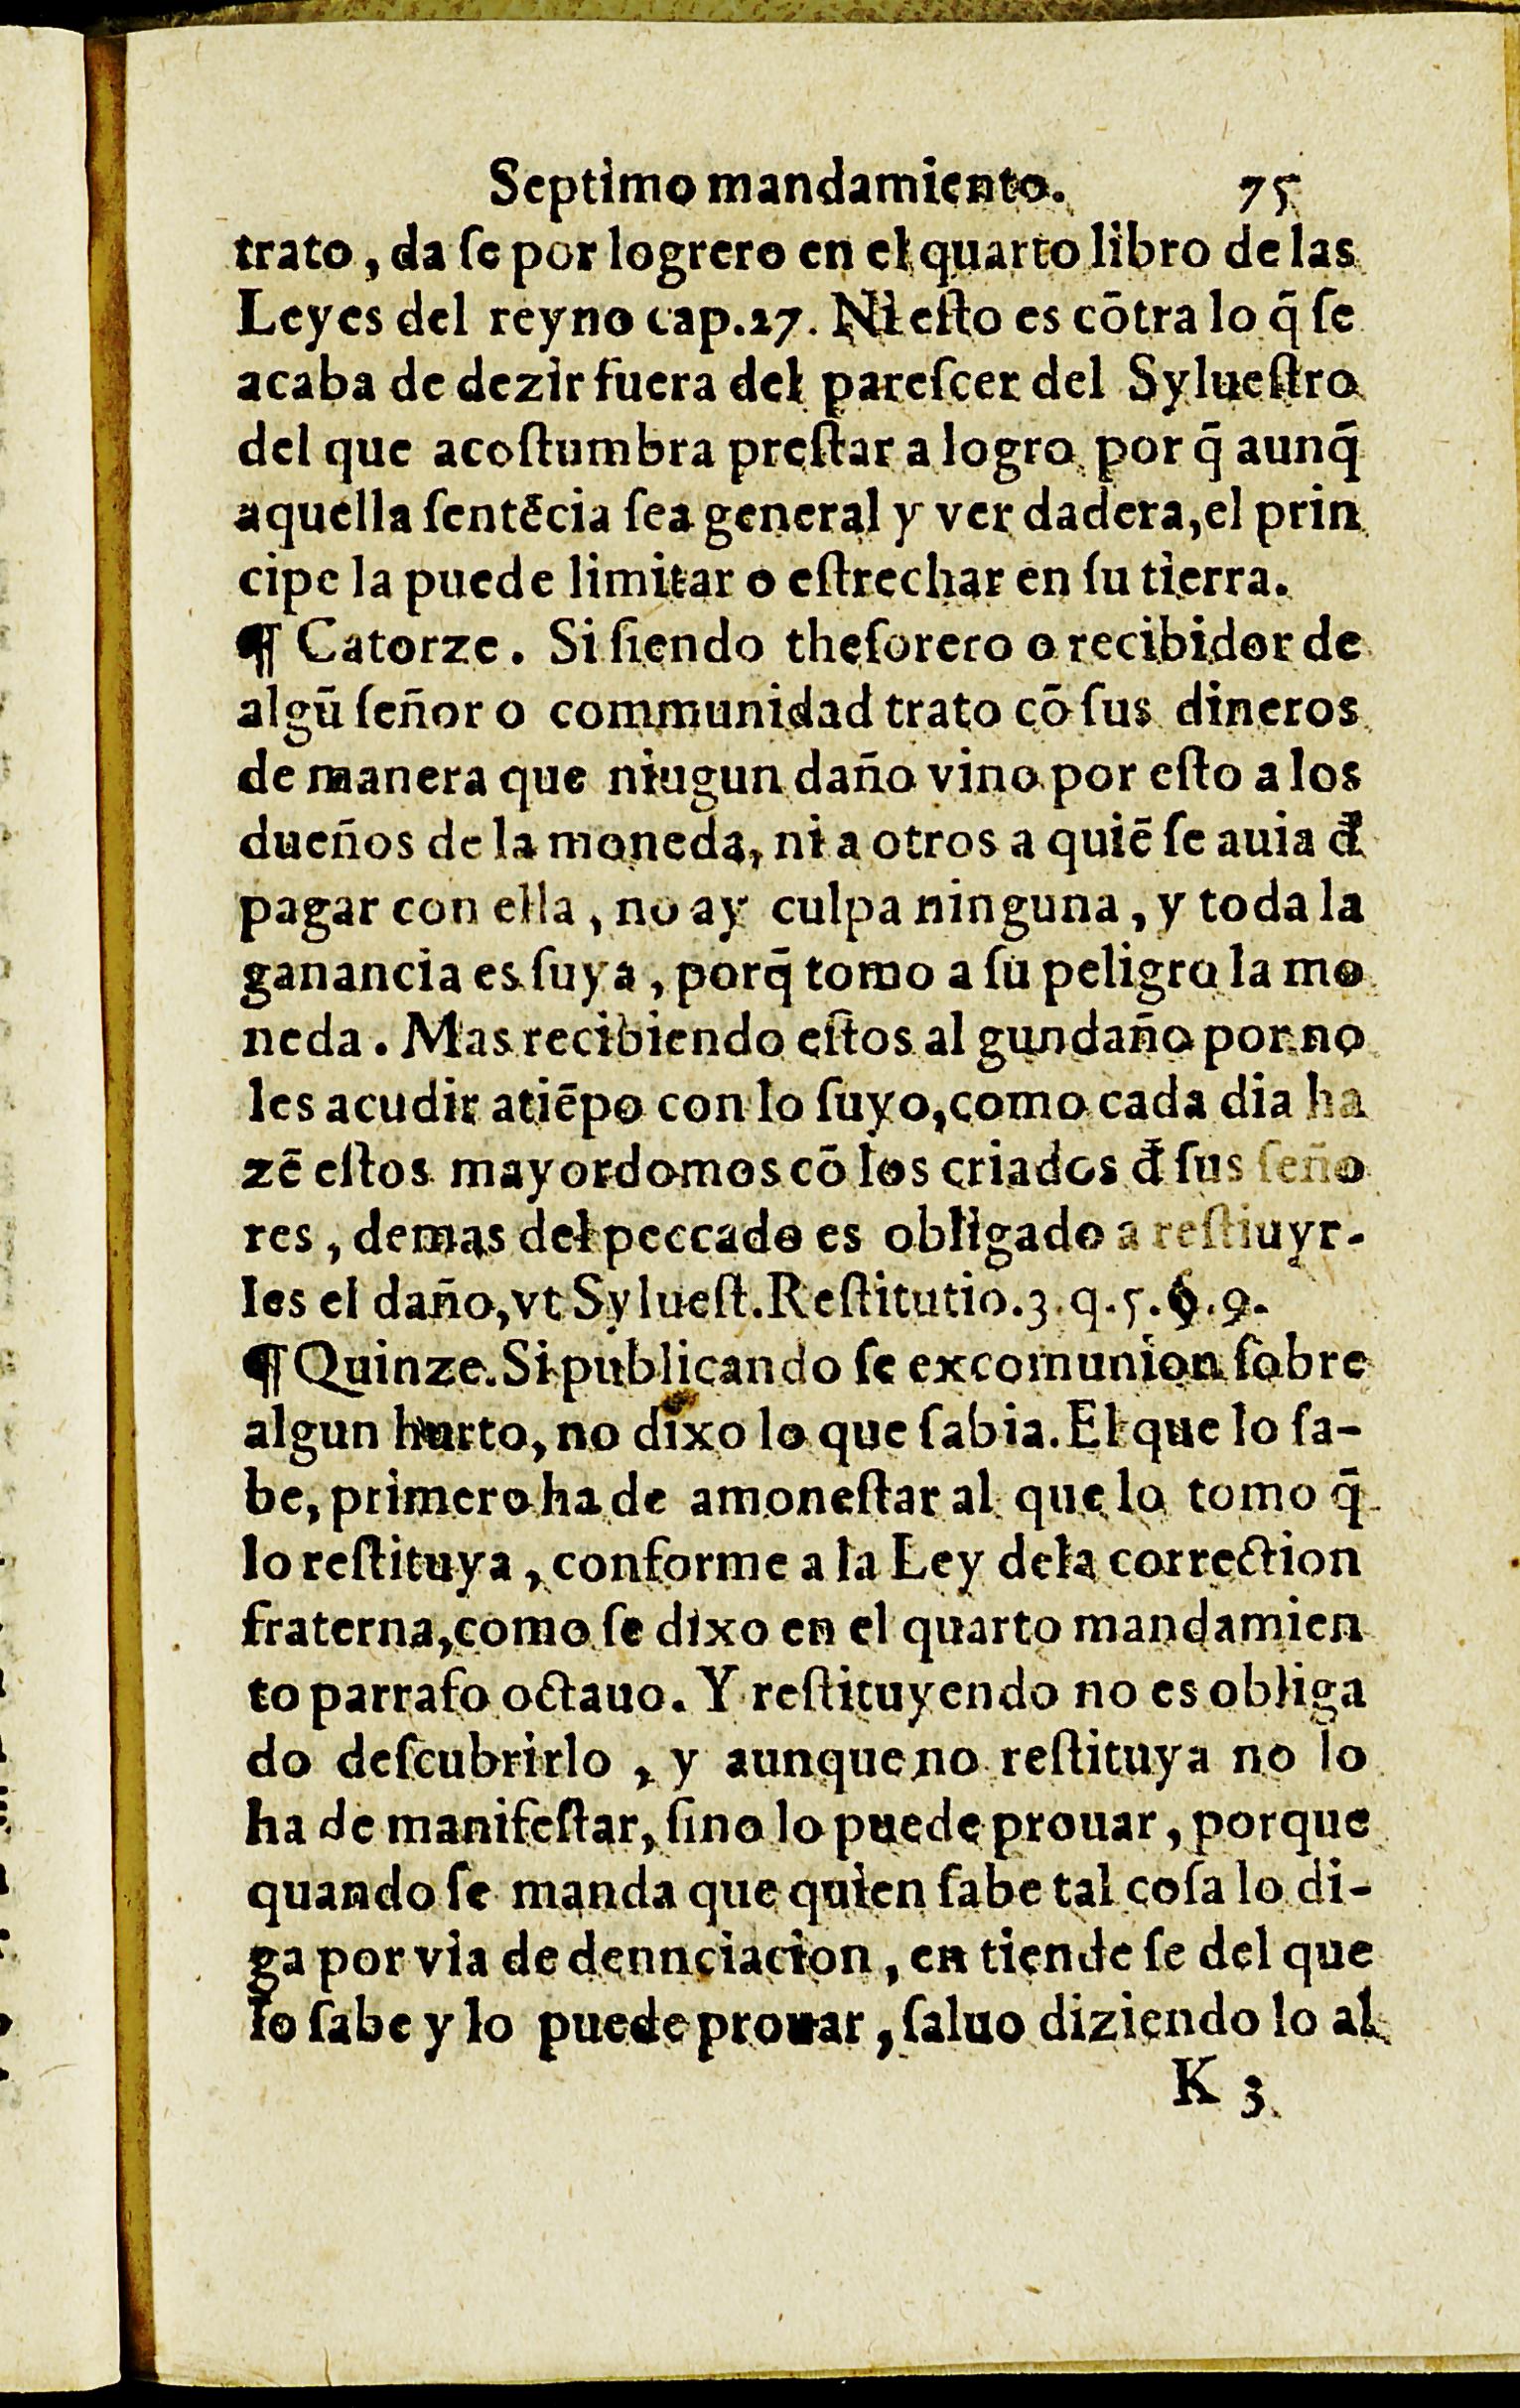 Septimo mandamiento. 75
trato, da ſe por logrero en el quarto libro de las
Leyes del reyno cap.27. Ni eſto es cõtra lo q̃ ſe
acaba de dezir fuera del pareſcer del Sylueſtro
del que acoſtumbra preſtar a logro por q̃ aunq̃
aquella ſentẽcia ſea general y ver dadera, el prin
cipe la puede limitar o eſtrechar en ſu tierra.
¶ Catorze. Si ſiendo theſorero o recibidor de
algũ ſeñor o communidad trato cõ ſus dineros
de manera que niugun daño vino por eſto a los
dueños de la moneda, ni a otros a quiẽ ſe auia d̃
pagar con ella, no ay culpa ninguna, y toda la
ganancia es ſuya, porq̃ tomo a ſu peligro la mo
neda. Mas recibiendo eſtos al gun daño por no
les acudir atiẽpo con lo ſuyo, como cada dia ha
zẽ eſtos mayordomos cõ los criados d̃ ſus ſeño
res, demas del peccado es obligado a reſtiuyr-
les el daño, vt Sylueſt. Reſtitutio.3.q.5.§.9.
¶ Quinze. Si publicando ſe excomunion ſobre
algun hurto, no dixo lo que ſabia. El que lo ſa-
be, primero ha de amoneſtar al que lo tomo q̃
lo reſtituya, conforme a la Ley dela correction
fraterna, como ſe dixo en el quarto mandamien
to parrafo octauo. Y reſtituyendo no es obliga
do deſcubrirlo, y aunque no reſtituya no lo
ha de manifeſtar, ſino lo puede prouar, porque
quando ſe manda que quien ſabe tal coſa lo di-
ga por via de dennciacion, en tiende ſe del que
lo ſabe y lo puede prouar, ſaluo diziendo lo al
K 3